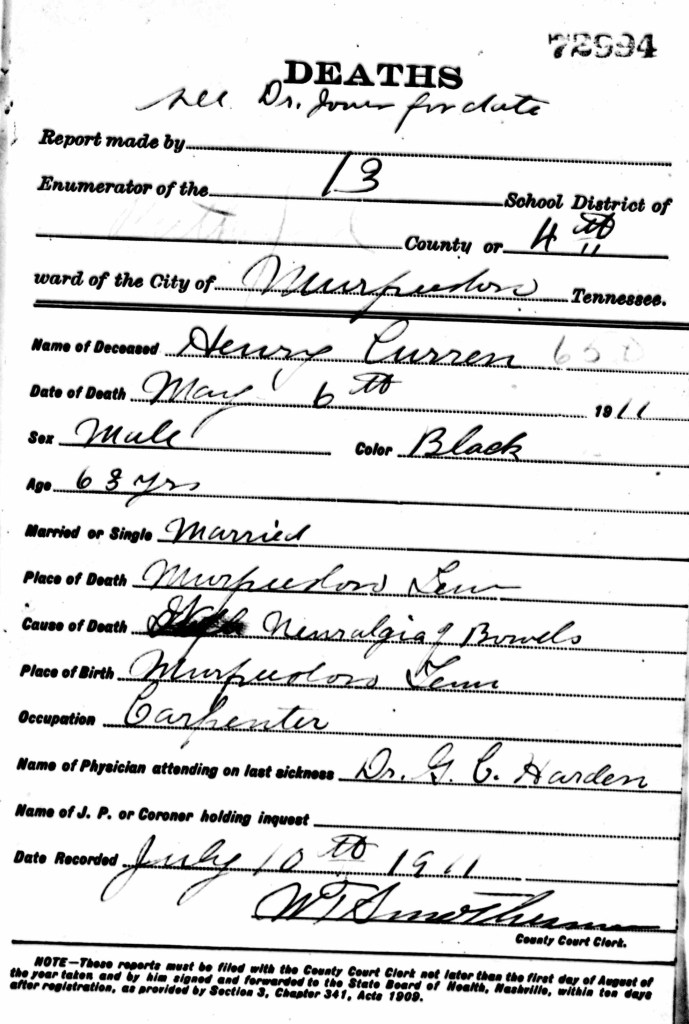 72994
DEATHS
see Dr. Jones for date
Report made by
Enumerator of the 13 School District of
County or 4th
ward of the City of Murfreesboro Tennessee.
Name of Deceased Henry Curren 650
Date of Death May 6th 1911
Sex Male Color Black
Age 63 yrs
Married or Single Married
Place of Death Murfreesboro Tenn
Cause of Death Neuralgia of Bowels
Place of Birth Murfreesboro Tenn
Occupation Carpenter
Name of Physician attending on last sickness Dr. G. C. Harden
Name of J. P. or Coroner holding inquest
Date Recorded July 10th 1911
W T Smotherman
County Court Clerk.
NOTE—These reports must be filed with the County Court Clerk not later than the first day of August of
the year taken and by him signed and forwarded to the State Board of Health, Nashville, within ten days
after registration, as provided by Section 3, Chapter 341, Acts 1909.